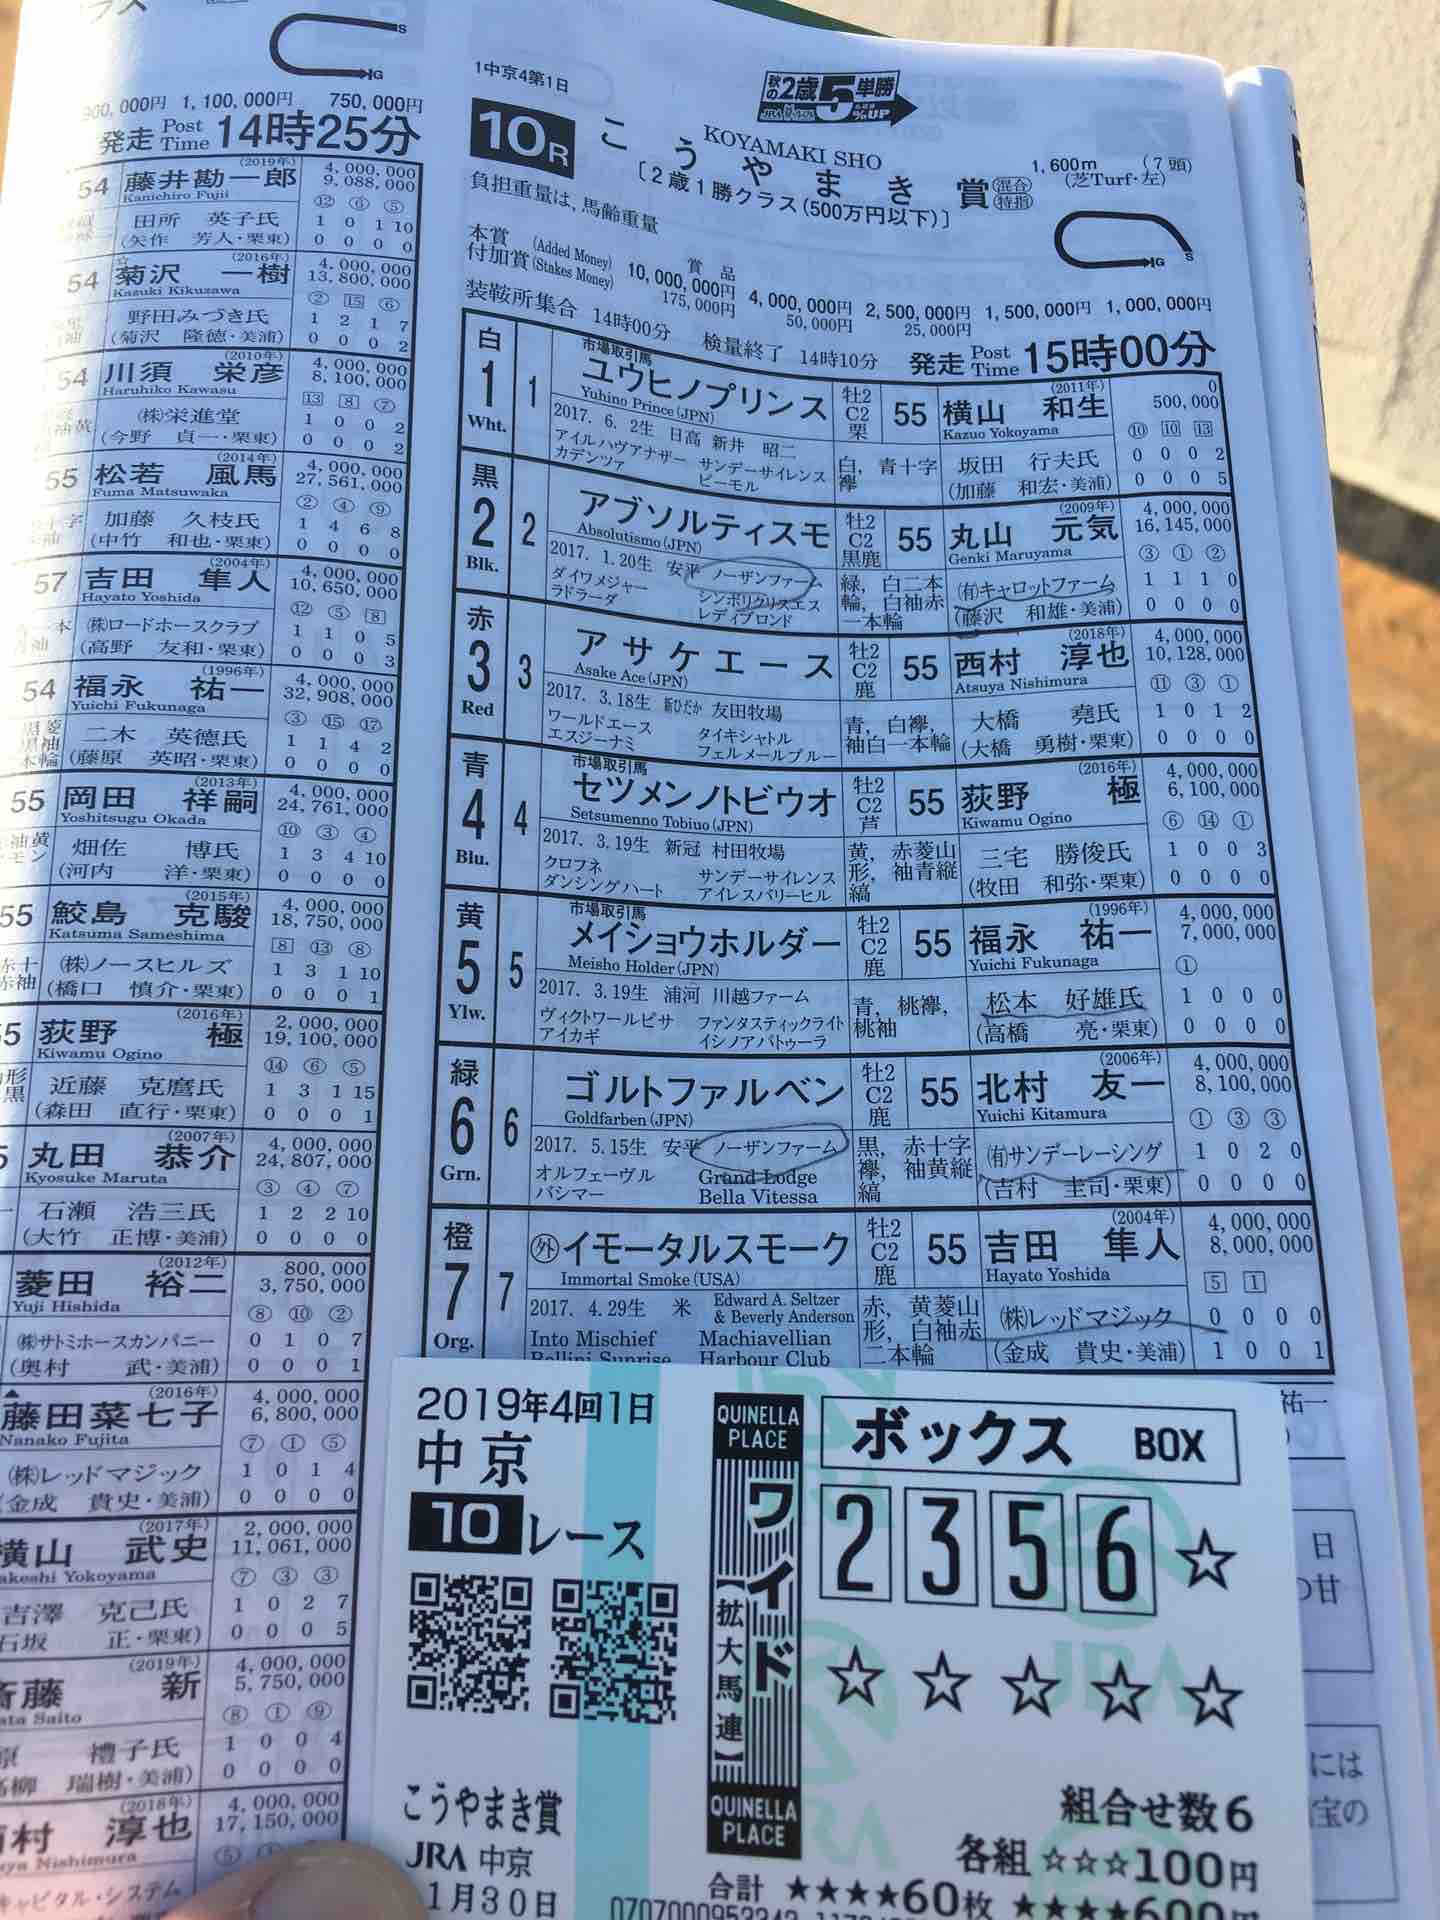 900,000円 1,100,000円 750,000円
発走 Post Time 14時25分
54 藤井勘一郎 (2019年) 4,000,000
Kanichiro Fujii 9,088,000
⑫ ⑥ ⑤
田所 英子氏 1 0 1 10
(矢作 芳人・栗東) 0 0 0 0
54 ☆菊沢 一樹 (2016年) 4,000,000
Kazuki Kikuzawa 13,800,000
② 15 ⑥
野田みづき氏 1 2 1 7
(菊沢 隆徳・美浦) 0 0 0 2
54 川須 栄彦 (2010年) 4,000,000
Haruhiko Kawasu 8,100,000
13 8 ⑦
㈱栄進堂 1 0 0 2
(今野 貞一・栗東) 0 0 0 2
55 松若 風馬 (2014年) 4,000,000
Fuma Matsuwaka 27,561,000
② ④ ⑨
加藤 久枝氏 1 4 6 8
(中竹 和也・栗東) 0 0 0 0
57 吉田 隼人 (2004年) 4,000,000
Hayato Yoshida 10,650,000
⑫ ⑤ 8
㈱ロードホースクラブ 1 1 0 5
(高野 友和・栗東) 0 0 0 3
54 福永 祐一 (1996年) 4,000,000
Yuichi Fukunaga 32,908,000
③ ⑮ ⑰
二木 英徳氏 1 1 4 2
(藤原 英昭・栗東) 0 0 0 0
55 岡田 祥嗣 (2013年) 4,000,000
Yoshitsugu Okada 24,761,000
⑩ ③ ④
畑佐 博氏 1 3 4 10
(河内 洋・栗東) 0 0 0 0
55 鮫島 克駿 (2015年) 4,000,000
Katsuma Sameshima 18,750,000
8 ⑬ ⑧
㈱ノースヒルズ 1 3 1 10
(橋口 慎介・栗東) 0 0 0 1
荻野 極 (2016年) 2,000,000
Kiwamu Ogino 19,100,000
⑭ ⑥ ⑤
近藤 克麿氏 1 3 1 15
(森田 直行・栗東) 0 0 0 1
丸田 恭介 (2007年) 4,000,000
Kyosuke Maruta 24,807,000
③ ④ ⑦
石瀬 浩三氏 1 2 2 10
(大竹 正博・美浦) 0 0 0 0
菱田 裕二 (2012年) 800,000
Yuji Hishida 3,750,000
⑧ ⑩ ②
㈱サトミホースカンパニー 0 1 0 7
(奥村 武・美浦) 0 0 0 1
▲藤田菜七子 (2016年) 4,000,000
Nanako Fujita 6,800,000
⑦ ① ⑤
㈱レッドマジック 1 0 1 4
(金成 貴史・美浦) 0 0 0 0
横山 武史 (2017年) 2,000,000
Takeshi Yokoyama 11,061,000
⑦ ③ ③
吉澤 克己氏 1 0 2 7
石坂 正・栗東) 0 0 0 5
斎藤 新 (2019年) 4,000,000
ata Saito 5,750,000
⑧ ① ⑨
原 禮子氏 1 0 0 4
高柳 瑞樹・美浦) 0 0 0 0
西村 淳也 (2018年) 4,000,000
uya Nishimura 17,150,000
キャピタル・システム
1中京4第1日
秋の2歳 単勝 5%UP
10R こうやまき賞 混合 特指
KOYAMAKI SHO
〔2歳1勝クラス(500万円以下)〕
1,600m (7頭)
(芝Turf・左)
負担重量は、馬齢重量
賞品
本賞 (Added Money) 10,000,000円 4,000,000円 2,500,000円 1,500,000円 1,000,000円
付加賞 (Stakes Money) 175,000円 50,000円 25,000円
装鞍所集合 14時00分 検量終了 14時10分 発走 Post Time 15時00分
白 1 Wht. 1 市場取引馬
ユウヒノプリンス 牡2 C2 栗 55 横山 和生 (2011年) 0
Yuhino Prince (JPN) Kazuo Yokoyama 500,000
⑩ 10 13
2017. 6. 2生 日高 新井 昭二 白, 青十字襷 坂田 行夫氏 0 0 0 2
アイルハヴアナザー サンデーサイレンス (加藤 和宏・美浦) 0 0 0 5
カデンツァ ビーモル
黒 2 Blk. 2 アブソルティスモ 牡2 C2 黒鹿 55 丸山 元気 (2009年) 4,000,000
Absolutismo (JPN) Genki Maruyama 16,145,000
③ ① ②
2017. 1.20生 安平 ノーザンファーム 緑, 白二本輪, 白袖赤一本輪 ㈲キャロットファーム 1 1 1 0
ダイワメジャー シンボリクリスエス (藤沢 和雄・美浦) 0 0 0 0
ラドラーダ レディブロンド
赤 3 Red 3 アサケエース 牡2 C2 鹿 55 西村 淳也 (2018年) 4,000,000
Asake Ace (JPN) Atsuya Nishimura 10,128,000
⑪ ③ ①
2017. 3.18生 新ひだか 友田牧場 青, 白襷, 袖白一本輪 大橋 堯氏 1 0 1 2
ワールドエース タイキシャトル (大橋 勇樹・栗東) 0 0 0 0
エスジーナミ フェルメールブルー
青 4 Blu. 4 市場取引馬
セツメンノトビウオ 牡2 C2 芦 55 荻野 極 (2016年) 4,000,000
Setsumenno Tobiuo (JPN) Kiwamu Ogino 6,100,000
⑥ ⑭ ①
2017. 3.19生 新冠 村田牧場 黄, 赤菱山形, 袖青縦縞 三宅 勝俊氏 1 0 0 3
クロフネ サンデーサイレンス (牧田 和弥・栗東) 0 0 0 0
ダンシングハート アイレスバリーヒル
黄 5 Ylw. 5 市場取引馬
メイショウホルダー 牡2 C2 鹿 55 福永 祐一 (1996年) 4,000,000
Meisho Holder (JPN) Yuichi Fukunaga 7,000,000
①
2017. 3.19生 浦河 川越ファーム 青, 桃襷, 桃袖 松本 好雄氏 1 0 0 0
ヴィクトワールピサ ファンタスティックライト (高橋 亮・栗東) 0 0 0 0
アイカギ イシノアパトゥーラ
緑 6 Grn. 6 ゴルトファルベン 牡2 C2 鹿 55 北村 友一 (2006年) 4,000,000
Goldfarben (JPN) Yuichi Kitamura 8,100,000
① ③ ③
2017. 5.15生 安平 ノーザンファーム 黒, 赤十字襷, 袖黄縦縞 ㈲サンデーレーシング 1 0 2 0
オルフェーヴル Grand Lodge (吉村 圭司・栗東) 0 0 0 0
バシマー Bella Vitessa
橙 7 Org. 7 ㊕イモータルスモーク 牡2 C2 鹿 55 吉田 隼人 (2004年) 4,000,000
Immortal Smoke (USA) Hayato Yoshida 8,000,000
5 1
2017. 4.29生 米 Edward A. Seltzer & Beverly Anderson 赤, 黄菱山形, 白袖赤二本輪 ㈱レッドマジック 0 0 0 0
Into Mischief Machiavellian (金成 貴史・美浦) 1 0 0 1
Bellini Sunrise Harbour Club
祐一
日
の甘
には
宝の
2019年4回1日
中京
10レース
こうやまき賞
JRA 中京
1月30日
QUINELLA PLACE
ワイド
【拡大馬連】
QUINELLA PLACE
ボックス BOX
2 3 5 6 ☆
☆ ☆ ☆ ☆ ☆
組合せ数6
各組 ☆☆☆100円
合計 ★★★★60枚 ★★★★600円